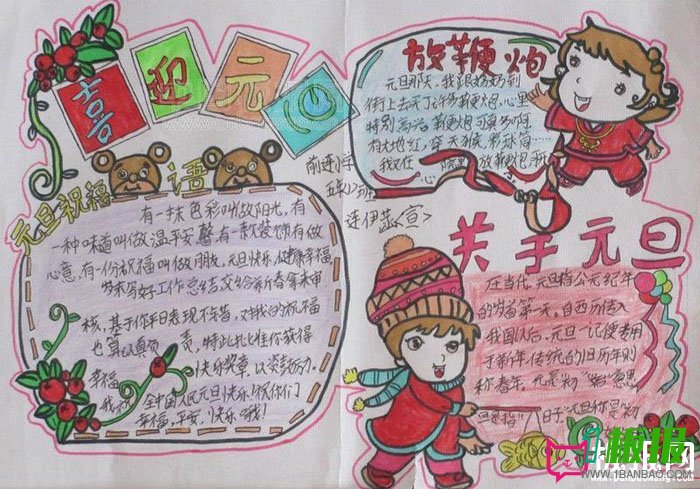 喜迎元旦
元旦祝福语
有一抹色彩叫做阳光,有
一种味道叫做温平安馨有一款装颂有做
心意,有一份祝福叫做朋友,元旦快乐,健康幸福
岁末写好工作总结交给新春拿来审
核,基于你平日表现不错,对我的祝福
也算认真负责,特此批准你获得
幸福快乐奖章,以资鼓励。
我祝全中国人民元旦快乐!祝你们
幸福,平安,快乐哦!
前进小学
五年(2)班
连伊恭宣
放鞭炮
元旦那天,我跟妈妈到
街上去买了许多鞭炮,心里
特别高兴。鞭炮可真多啊,
有大地红,穿天猴,彩珠筒…
我双在
心
放鞭炮
关于元旦
在当代,元旦指公元纪年
的岁首第一天。自西历传入
我国以后,元旦一词便专用
于新年,传统的旧历年则
称春年。元是"初""始"意思
旦是指"日子",元旦称是"初
1椒报
WWW.1BANBAO.COM